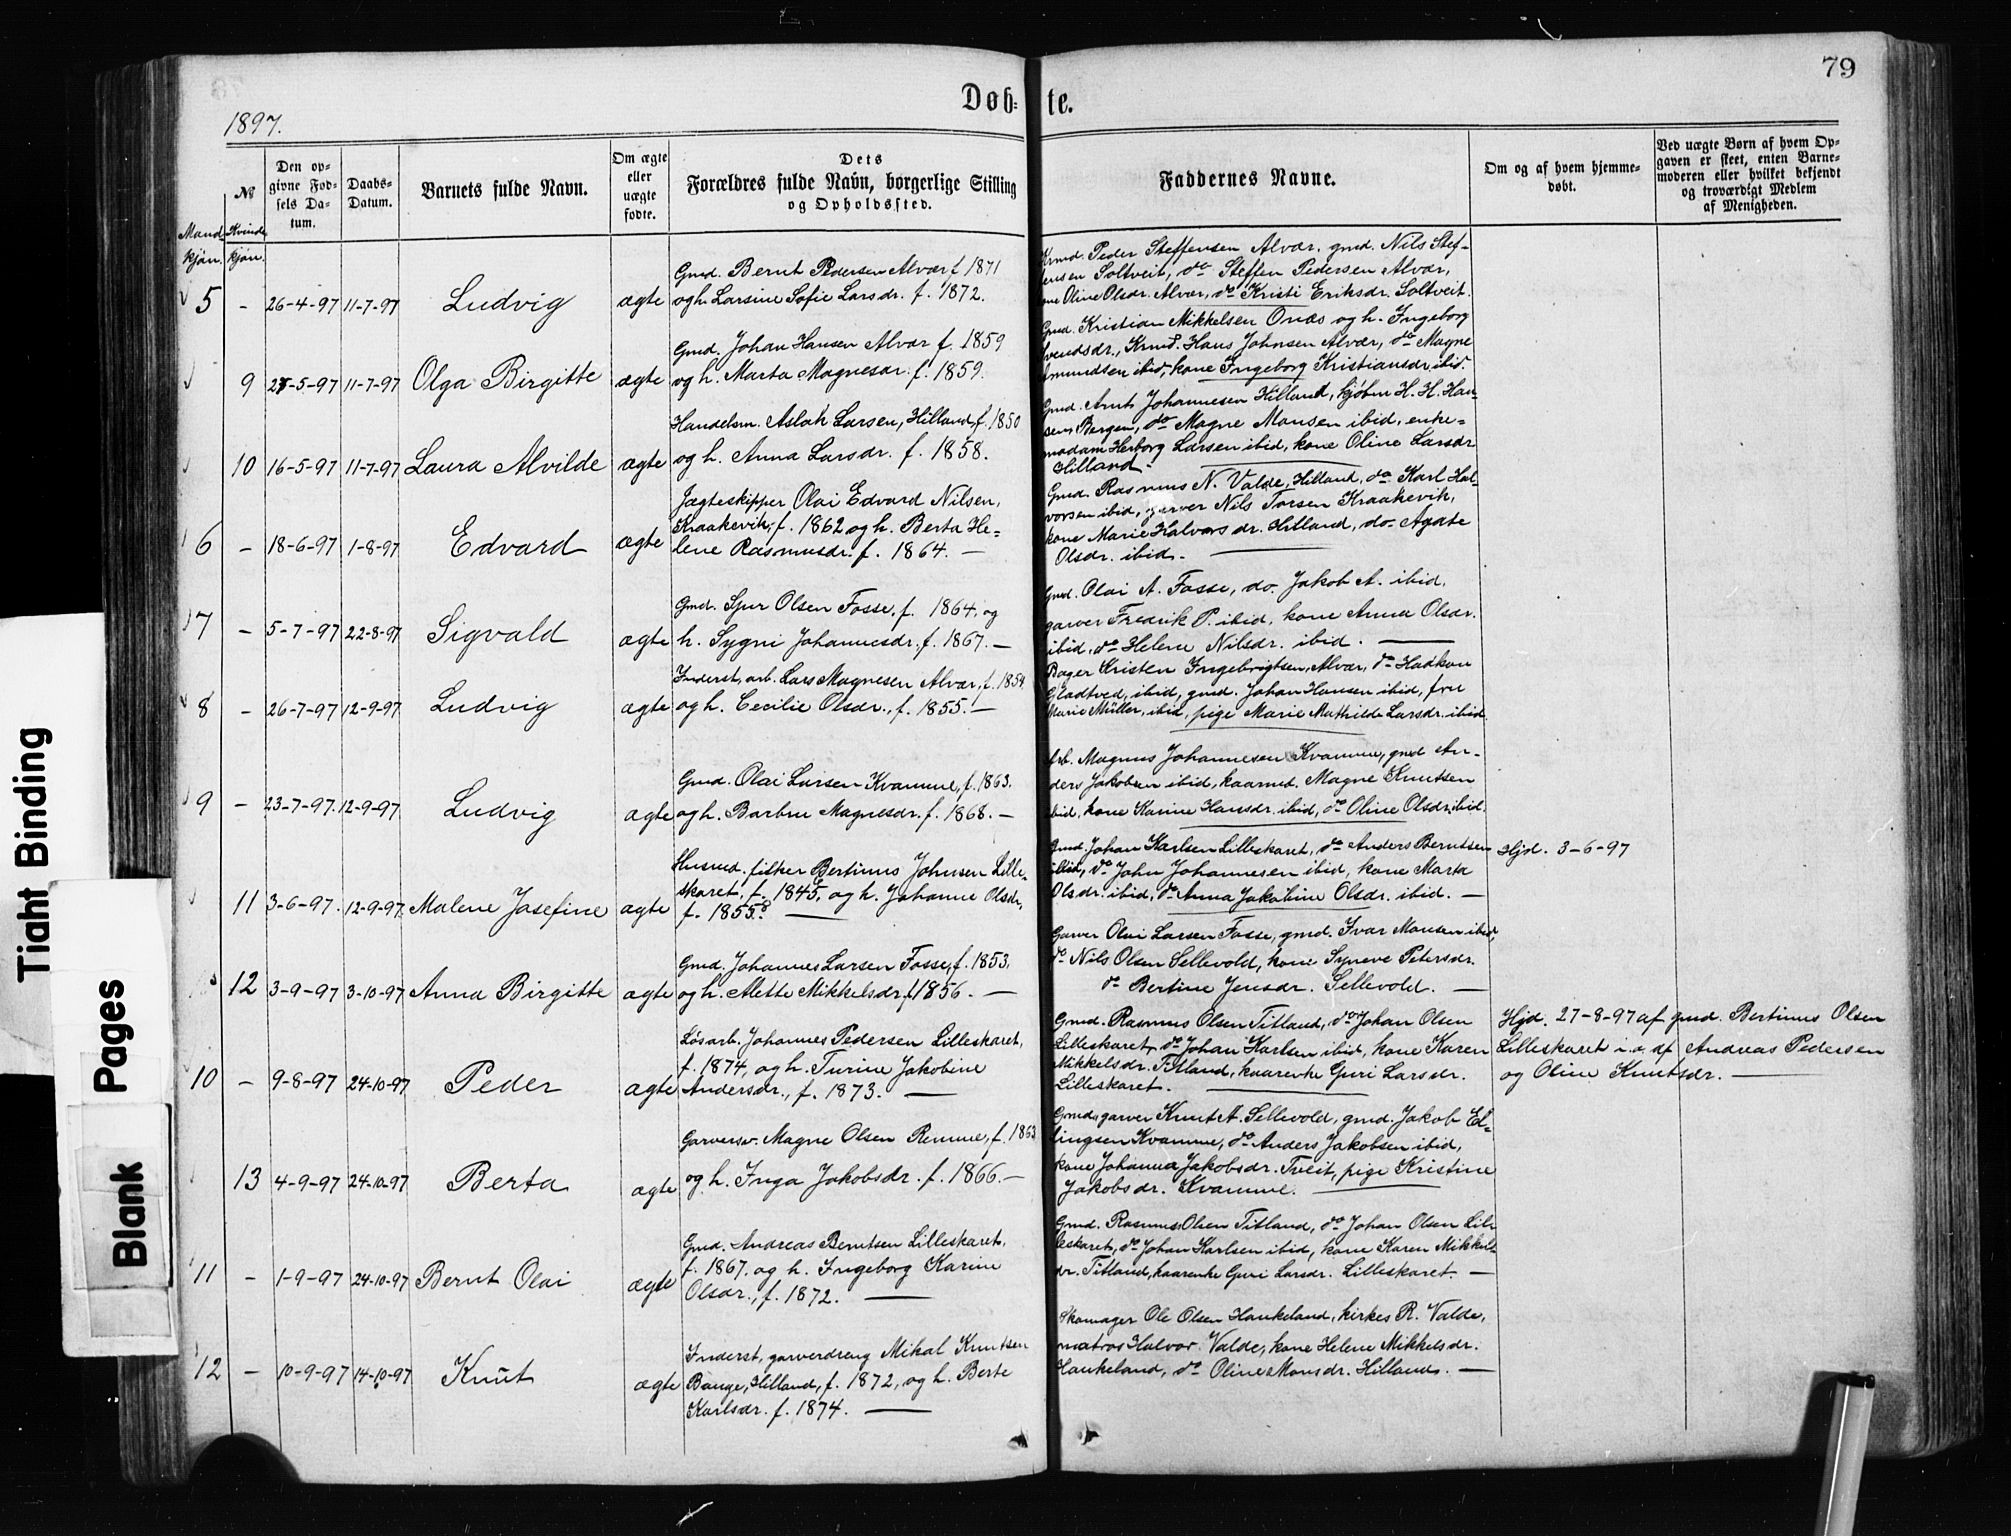 79
Døb- te.
1897.
№
Den op-
givne Fød-
sels Da-
tum.
Daabs-
Datum.
Barnets fulde Navn.
Om ægte
eller
uægte
fødte.
Dets
Forældres fulde Navn, borgerlige Stilling
og Opholdssted.
Faddernes Navne.
Om og af hvem hjemme-
døbt.
Ved uægte Børn af hvem Op-
gaven er skeet, enten Barne-
moderen eller hvilket bekjendt
og troværdigt Medlem
af Menigheden.
Mand
kjøn.
Kvinde
kjøn.
5 - 26-4-97 11-7-97 Ludvig ægte
Gmd. Bernt Pedersen Alvær f. 1871
og h. Larsine Sofie Larsdr. f. 1872.
Krmd. Peder Steffensen Alvær, gmd. Nils Stef-
fensen Soltveit, do Steffen Pedersen Alvær,
kone Oline Olsdr. Alvær, do Kristi Eriksdr. Soltveit.
9 27-5-97 11-7-97 Olga Birgitte ægte
Gmd. Johan Hansen Alvær f. 1859
og h. Marta Magnesdr. f. 1859.
Gmd. Kristian Mikkelsen Onæs og h. Ingeborg
Krmd. Hans Johnsen Alvær, do Magne
Amundsen ibid, kone Ingeborg Kristiansdr. ibid.
10 16-5-97 11-7-97 Laura Alvilde ægte
Handelsm. Aslak Larsen, Hilland, f. 1850
og h. Anna Larsdr. f. 1858.
Gmd. Arnt Johannesen Hilland, kjøbm H. H. Han-
sen, Bergen, do Magne Monsen ibid, enke-
madam Herborg Larsen ibid, kone Oline Larsdr
Hilland.
6 - 18-6-97 1-8-97 Edvard ægte
Jægteskipper Olai Edvard Nilsen,
Kraakevik, f. 1862 og h. Berta He-
lene Rasmusdr. f. 1864. -
Gmd. Rasmus N. Valde, Hilland, do Karl Hal-
vorsen ibid, garver Nils Torsen Kraakevik,
kone Marie Halvorsdr. Hilland, do. Agate
Olsdr. ibid. -
7 - 5-7-97 22-8-97 Sigvald ægte
Gmd. Sjur Olsen Fosse, f. 1864, og
h. Sygni Johannesdr. f. 1867. -
Gmd. Olai A. Fosse, do. Jakob A. ibid.
garver Fredrik P. ibid, kone Anna Olsdr.
ibid, do Helene Nilsdr. ibid.
8 - 26-7-97 12-9-97 Ludvig ægte
Inderst, arb. Lars Magnesen Alvær, f. 1854
og h. Cecilie Olsdr., f. 1855. -
Bager Kristen Ingebrigtsen, Alvær, do Haakon
Gladtved, ibid, gmd. Johan Hansen ibid, fru
Marie Müller, ibid, pige Marie Mathilde Larsdr. ibid.
9 - 23-7-97. 12-9-97 Ludvig ægte
Gmd. Olai Larsen Kvamme, f. 1863.
og h. Barbru Magnesdr. f. 1868. -
Arb. Magnus Johannesen Kvamme, gmd An-
ders Jakobsen ibid, kaarmd. Magne Knutsen
ibid, kone Karine Hansdr. ibid, do Oline Olsdr. ibid.
11 3-6-97. 12-9-97. Malene Josefine ægte
Husmd. fisker Bertinus Johnsen Lille-
skaret, f. 1845, og h. Johanne Olsdr,
f. 1855.
Gmd. Johan Karlsen Lilleskaret, do Anders Berntsen
ibid, do John Johannesen ibid, kone Marta
Olsdr. ibid, do Anna Jakobine Olsdr. ibid. -
Hjd. 3-6-97
12 3-9-97 3-10-97 Anna Birgitte ægte
Gmd. Johannes Larsen Fosse, f. 1853.
og h. Alette Mikkelsdr. f. 1856. -
Garver Olai Larsen Fosse, gmd. Ivar Monsen ibid,
do Nils Olsen Sellevold, kone Syneve Petersdr.
do Bertine Jensdr. Sellevold. -
10 - 9-8-97 24-10-97 Peder ægte
Løsarb. Johannes Pedersen Lilleskaret,
f. 1874, og h. Turine Jakobine
Andersdr., f. 1873. -
Gmd. Rasmus Olsen Titland, do Johan Olsen
Lilleskaret, do Johan Karlsen ibid, kone Karen
Mikkelsdr. Titland, kaarenke Guri Larsdr.
Lilleskaret.
Hjd. 27-8-97 af gmd. Bertinus Olsen
Lilleskaret i. o. af Andreas Pedersen
og Oline Knutsdr. -
13 4-9-97 24-10-97 Berta ægte
Garversv. Magne Olsen Remme, f. 1863
og h. Inga Jakobsdr. f. 1866. -
Gmd, garver Knut A. Sellevold, gmd. Jakob El-
lingsen Kvamme, do Anders Jakobsen ibid,
kone Johanna Jakobsdr. Tveit, pige Kristine
Jakobsdr. Kvamme.
11 - 1-9-97 24-10-97 Bernt Olai ægte
Gmd. Andreas Berntsen Lilleskaret,
f. 1867, og h. Ingeborg Karine
Olsdr., f. 1872. -
Gmd. Rasmus Olsen Titland, do Johan Olsen Lil-
leskaret, do Johan Karlsen ibid, kone Karen Mikkels
dr. Titland, kaarenke Guri Larsdr. Lilleskaret. -
12 - 10-9-97 14-10-97 Knut ægte
Inderst, garverdreng Mikal Knutsen
Bauge, Hilland, f. 1872, og h. Berte
Karlsdr. f. 1874. -
Skomager Ole Olsen Haukeland, kirkes R. Valde,
matros Halvor Valde, kone Helene Mikkelsdr.
Haukeland, do Oline Monsdr. Hilland. -
Tiaht Binding
Blank Pages